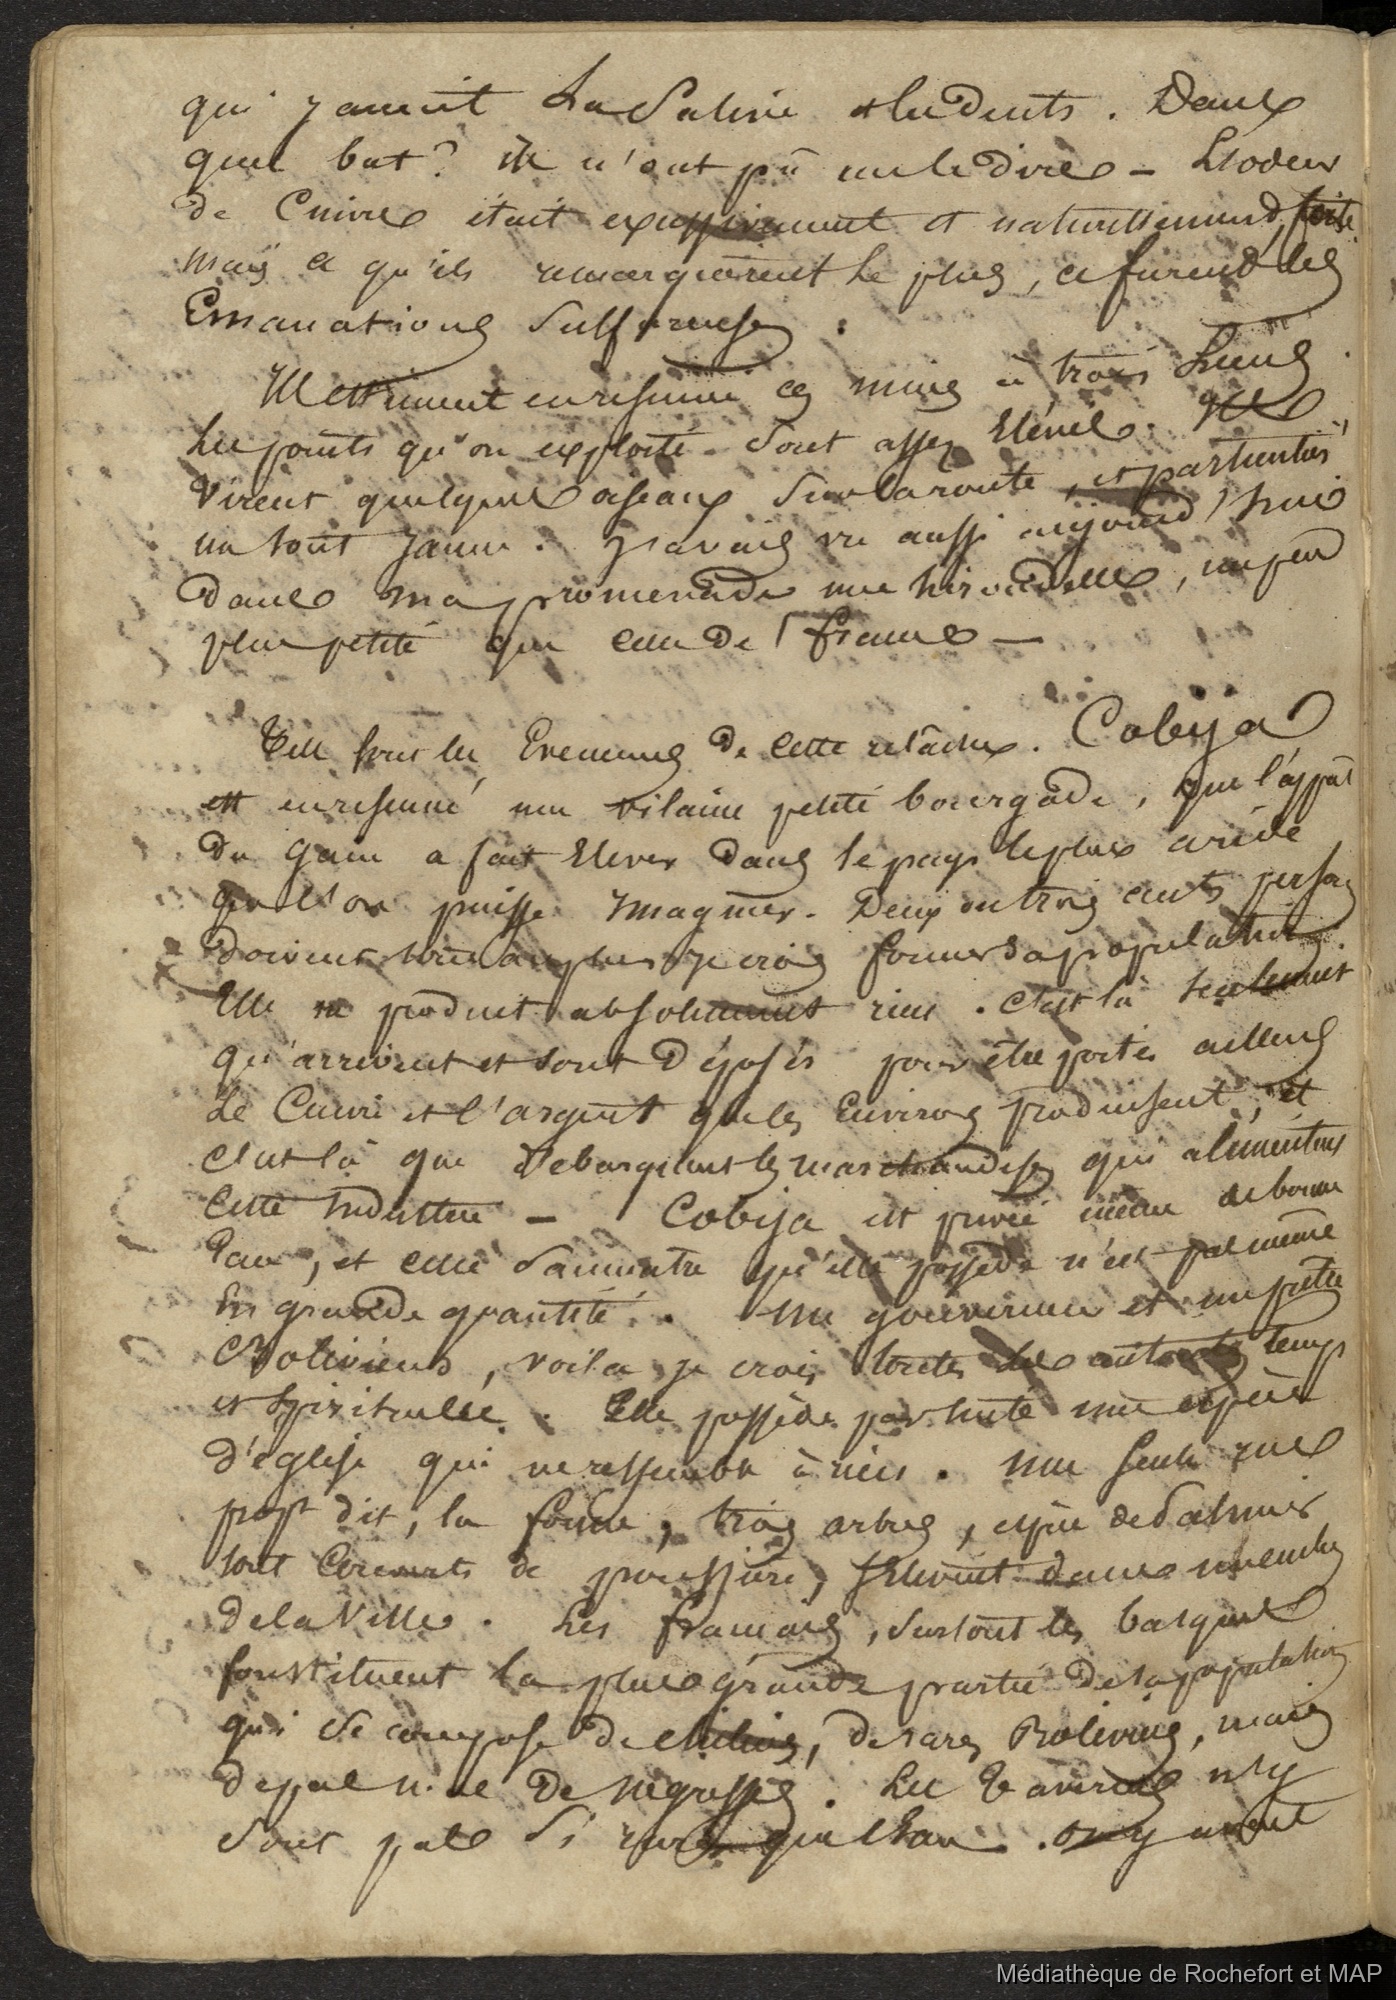 qui jaunit la Salive et les dents. Dans
quel but? ils n'ont pû me le dire – L'odeur
de Cuivre était excessivement et naturellement forte
mais ce qu'ils remarquèrent le plus, ce furent les
Emanations Sulfureuses.
en resumé ces mines à trois lieues
Les points qu'on exploite sont assez Elévés. Ils
virent quelques oiseaux sur la route, et particulièr
un tout jaune. J'avais vu aussi aujourd'hui
dans ma promenade une hirondelle, un peu
plus petite que celle de france –
Tels sont les Evenements de cette relâche. Cobija
est en resumé une vilaine petite bourgade, que l'appât
du gain a fait Elever dans le pays le plus aride
que l'on puisse Imaginer. Deux ou trois cents person
doivent tout au plus je crois former sa population.
Elle ne produit absolument rien. C'est là seulement
qu'arrivent et sont déposés pour être portés ailleurs
Le Cuivre et l'argent que les Environs produisent, et
c'est là que debarquent les marchandises qui alimentent
Cette Industrie – Cobija est privée même de bonne
Eau, et celle saumatre qu'elle possède n'est pas même
En grande quantité. Un gouverneur et un prêtre
Boliviens, voila je crois toutes les autorités temp
et Spirituelles. Elle possède par suite une espèce
d'église qui ne ressemble à rien. Une seule rue
propt dit, la forme, trois arbres, espèce de Palmier
tout Couverts de poussière, s'élèvent dans
de la Ville. Les français, surtout les basques
constituent la plus grande partie de sa population
qui se compose de chiliens, de rares Boliviens, mais
de pas de negresses. Les Tavernes n'y
sont pas si rares que l'Eau. on y avait